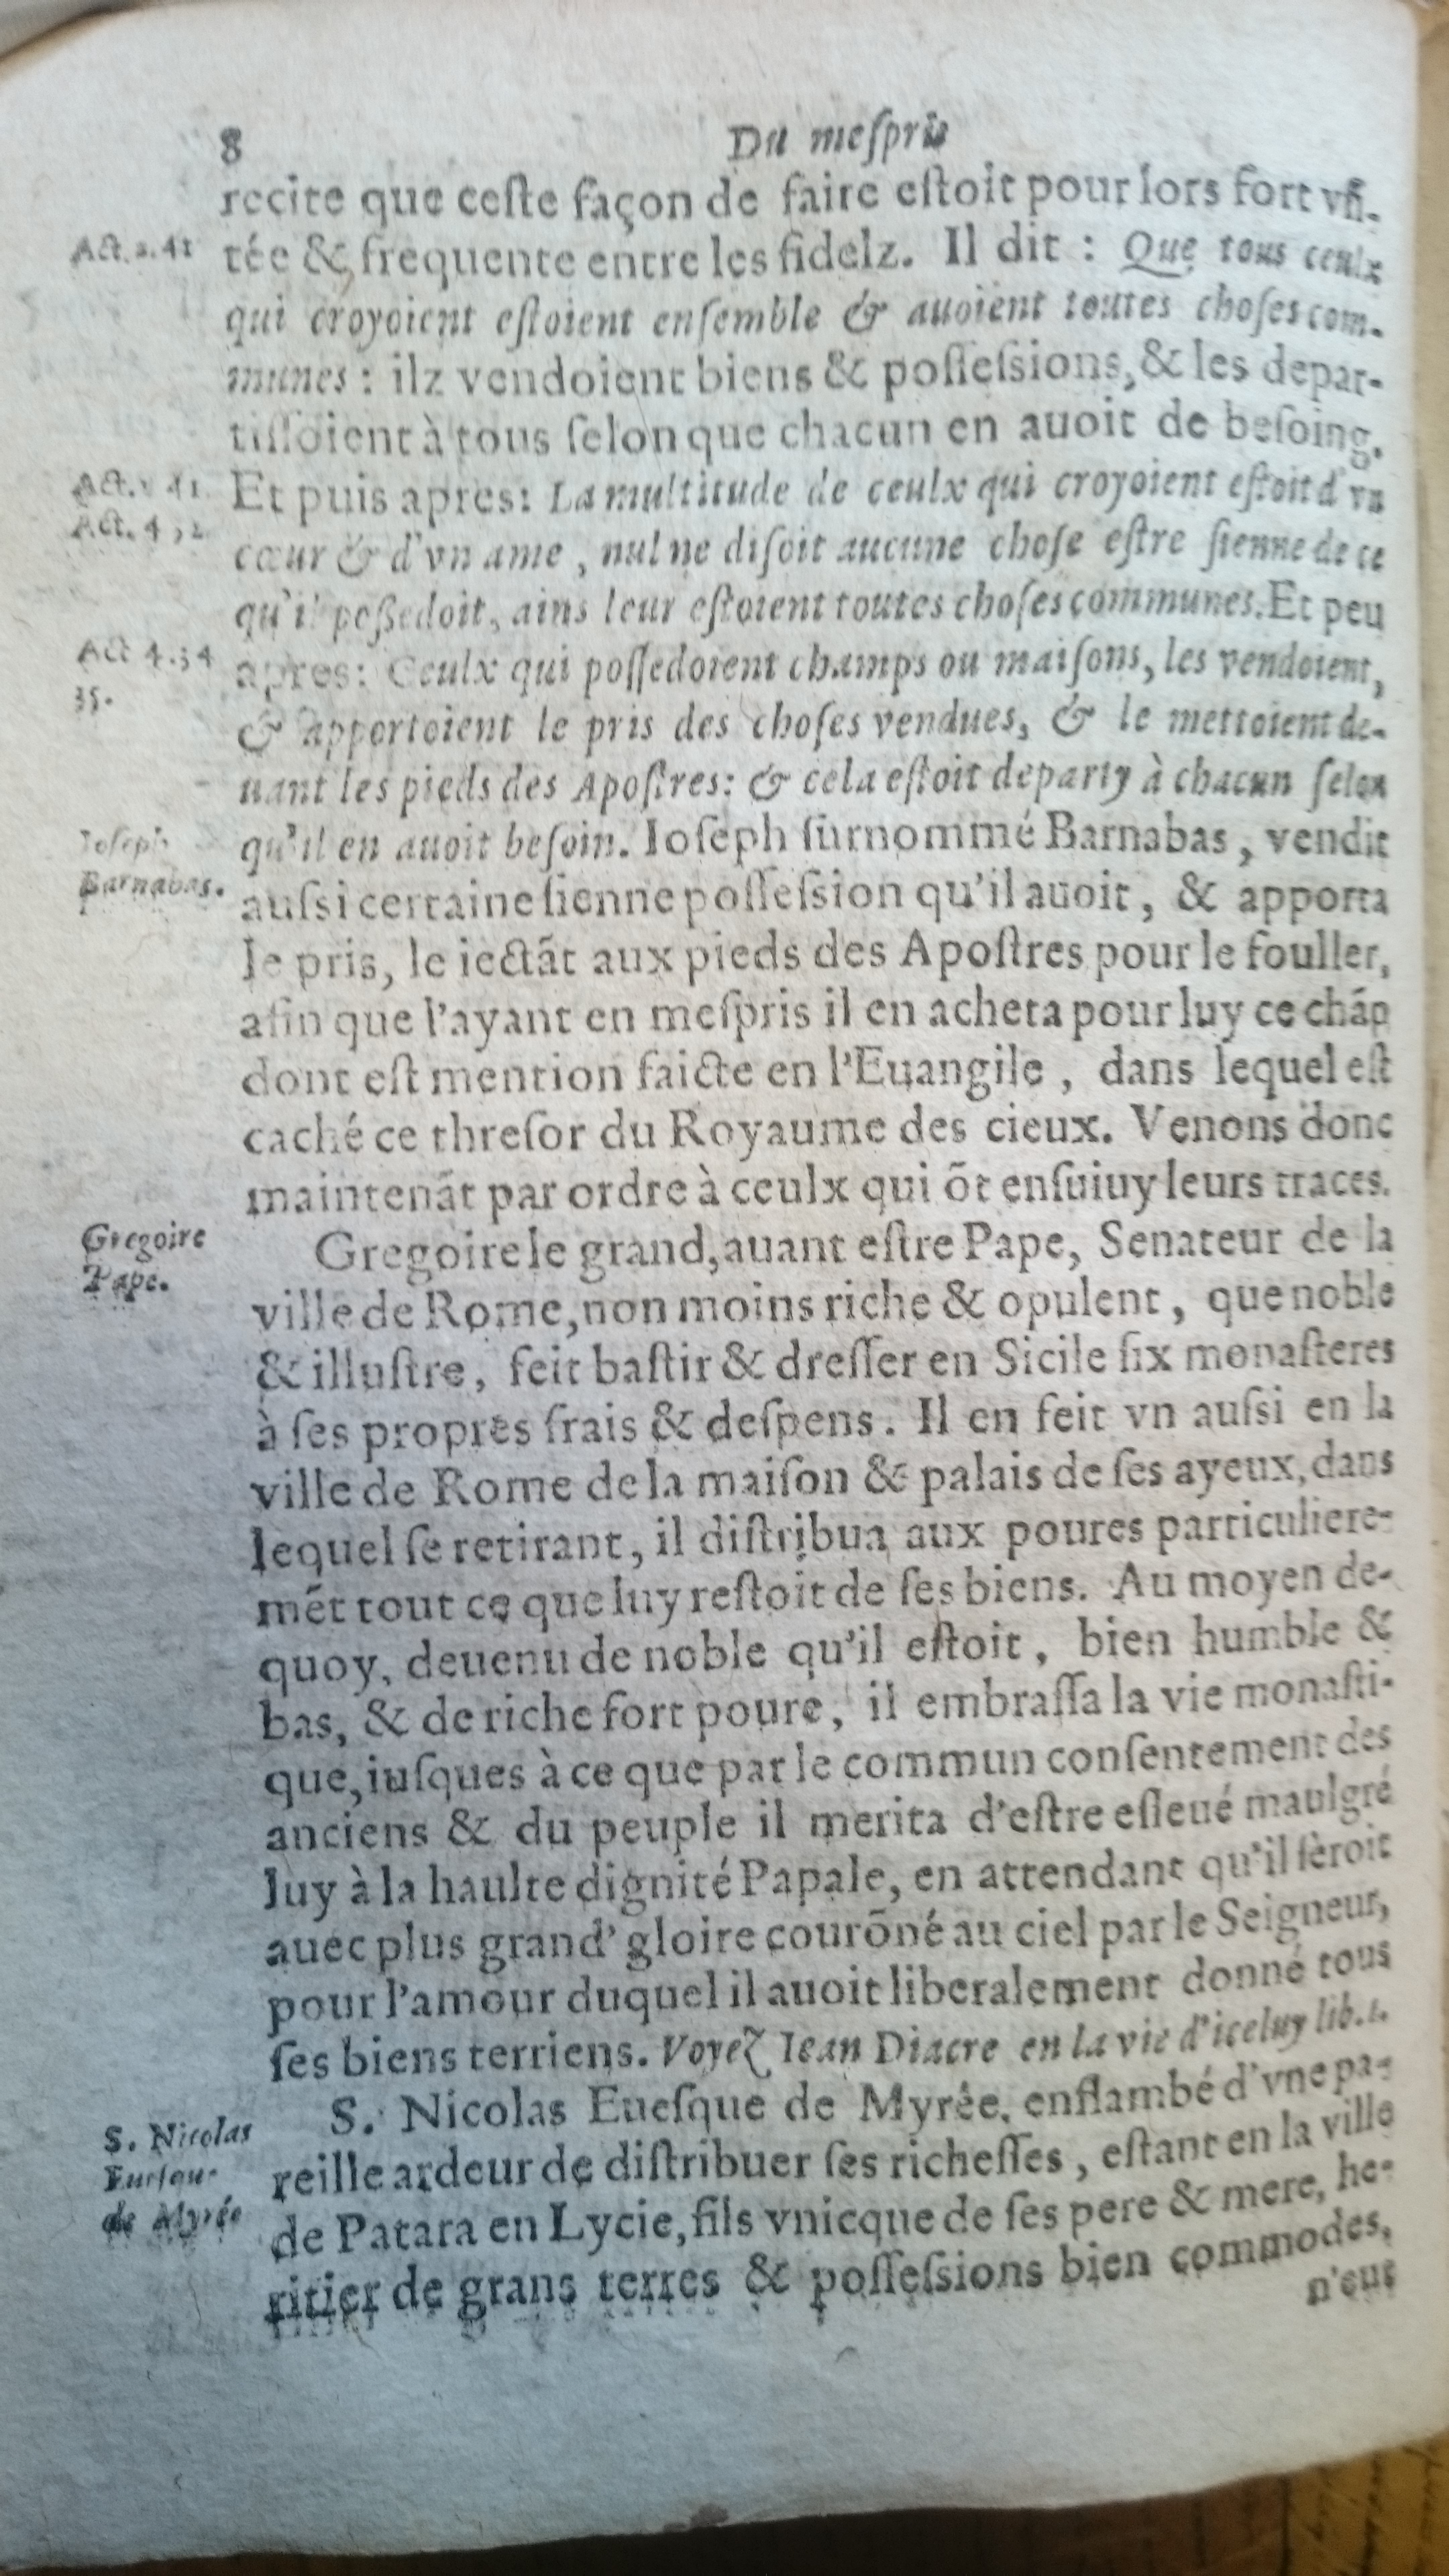 8 Du meſpris
recite que ceſte façon de faire eſtoit pour lors fort vſi-
Act. 2. 41
tée & frequente entre les fidelz. Il dit : Que tous ceulx
qui croyoient eſtoient enſemble & auoient toutes choſes com-
munes : ilz vendoient biens & poſſeſsions, & les depar-
tiſſoient à tous ſelon que chacun en auoit de beſoing.
Act. 41
Et puis apres : La multitude de ceulx qui croyoient eſtoit d'vn
Act. 4
cœur & d'vn ame , nul ne diſoit aucune choſe eſtre ſienne de ce
qu'il poßedoit, ains leur eſtoient toutes choſes communes. Et peu
Act 4.34
35.
apres : Ceulx qui poſſedoient champs ou maiſons, les vendoient,
& apportoient le pris des choſes vendues, & le mettoient de-
uant les pieds des Apoſtres: & cela eſtoit departy à chacun ſelon
Ioſeph
Barnabas.
qu'il en auoit beſoin. Ioſeph ſurnommé Barnabas , vendit
auſsi certaine ſienne poſſeſsion qu'il auoit , & apporta
le pris, le iectãt aux pieds des Apoſtres pour le fouller,
afin que l'ayant en meſpris il en acheta pour luy ce chãp
dont eſt mention faicte en l'Euangile , dans lequel eſt
caché ce threſor du Royaume des cieux. Venons donc
maintenãt par ordre à ceulx qui õt enſuiuy leurs traces.
Gregoire
Pape.
Gregoire le grand, auant eſtre Pape, Senateur de la
ville de Rome, non moins riche & opulent , que noble
& illuſtre, feit baſtir & dreſſer en Sicile ſix monaſteres
à ſes propres frais & deſpens. Il en feit vn auſsi en la
ville de Rome de la maiſon & palais de ſes ayeux, dans
lequel ſe retirant, il diſtribua aux poures particuliere-
mét tout ce que luy reſtoit de ſes biens. Au moyen de-
quoy, deuenu de noble qu'il eſtoit , bien humble &
bas, & de riche fort poure, il embraſſa la vie monaſti-
que, iuſques à ce que par le commun conſentement des
anciens & du peuple il merita d'eſtre eſleué maulgré
luy à la haulte dignité Papale, en attendant qu'il ſeroit
auec plus grand' gloire courõné au ciel par le Seigneur,
pour l'amour duquel il auoit liberalement donné tous
ſes biens terriens. Voyez Iean Diacre en la vie d'iceluy lib.1.
S. Nicolas
de Myrée
S. Nicolas Eueſque de Myrée, enflambé d'vne pa-
reille ardeur de diſtribuer ſes richeſſes , eſtant en la ville
de Patara en Lycie, fils vnicque de ſes pere & mere, he-
ritier de grans terres & poſſeſsions bien commodes,
n'eut